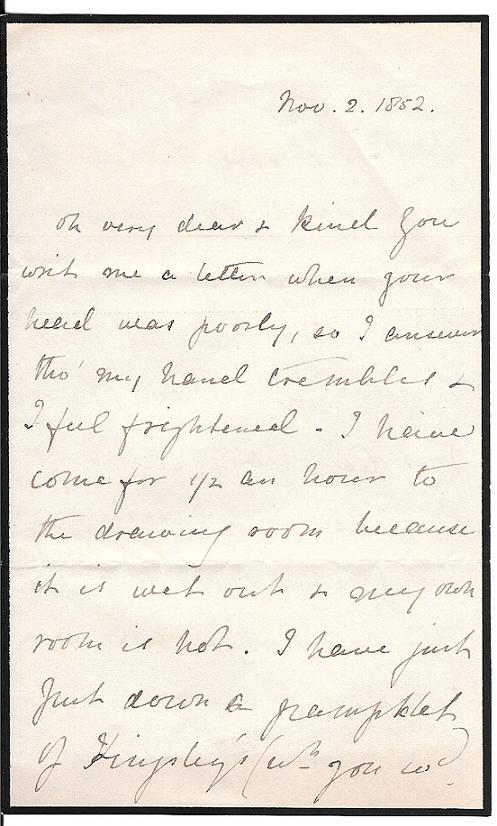 Nov. 2. 1852.
Oh very dear & kind You
writ me a letter when your
head was poorly, so I answer
tho' my hand trembles &
I feel frightened - I have
come for 1/2 an hour to
the drawing room because
it is wet out & my own
room is hot. I have just
put down a pamphlet
of Kingsley's (wh you wd